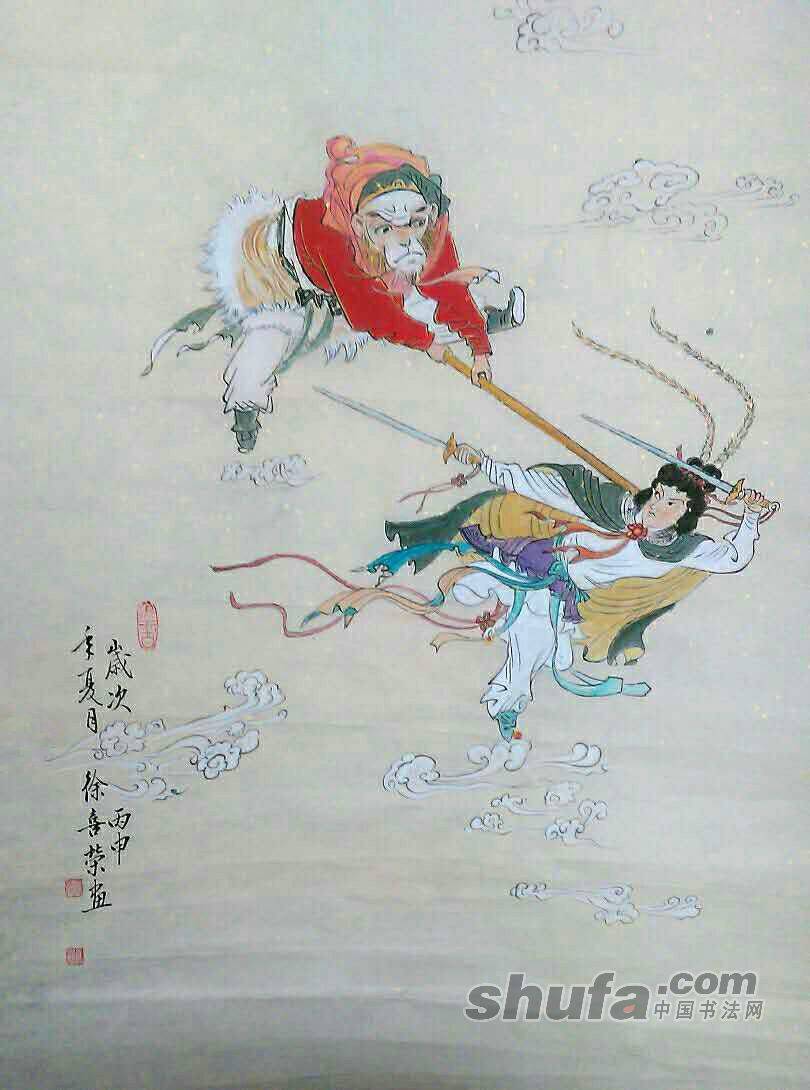 歲次丙申
年夏月徐喜榮画
shufa.com
中国书法网